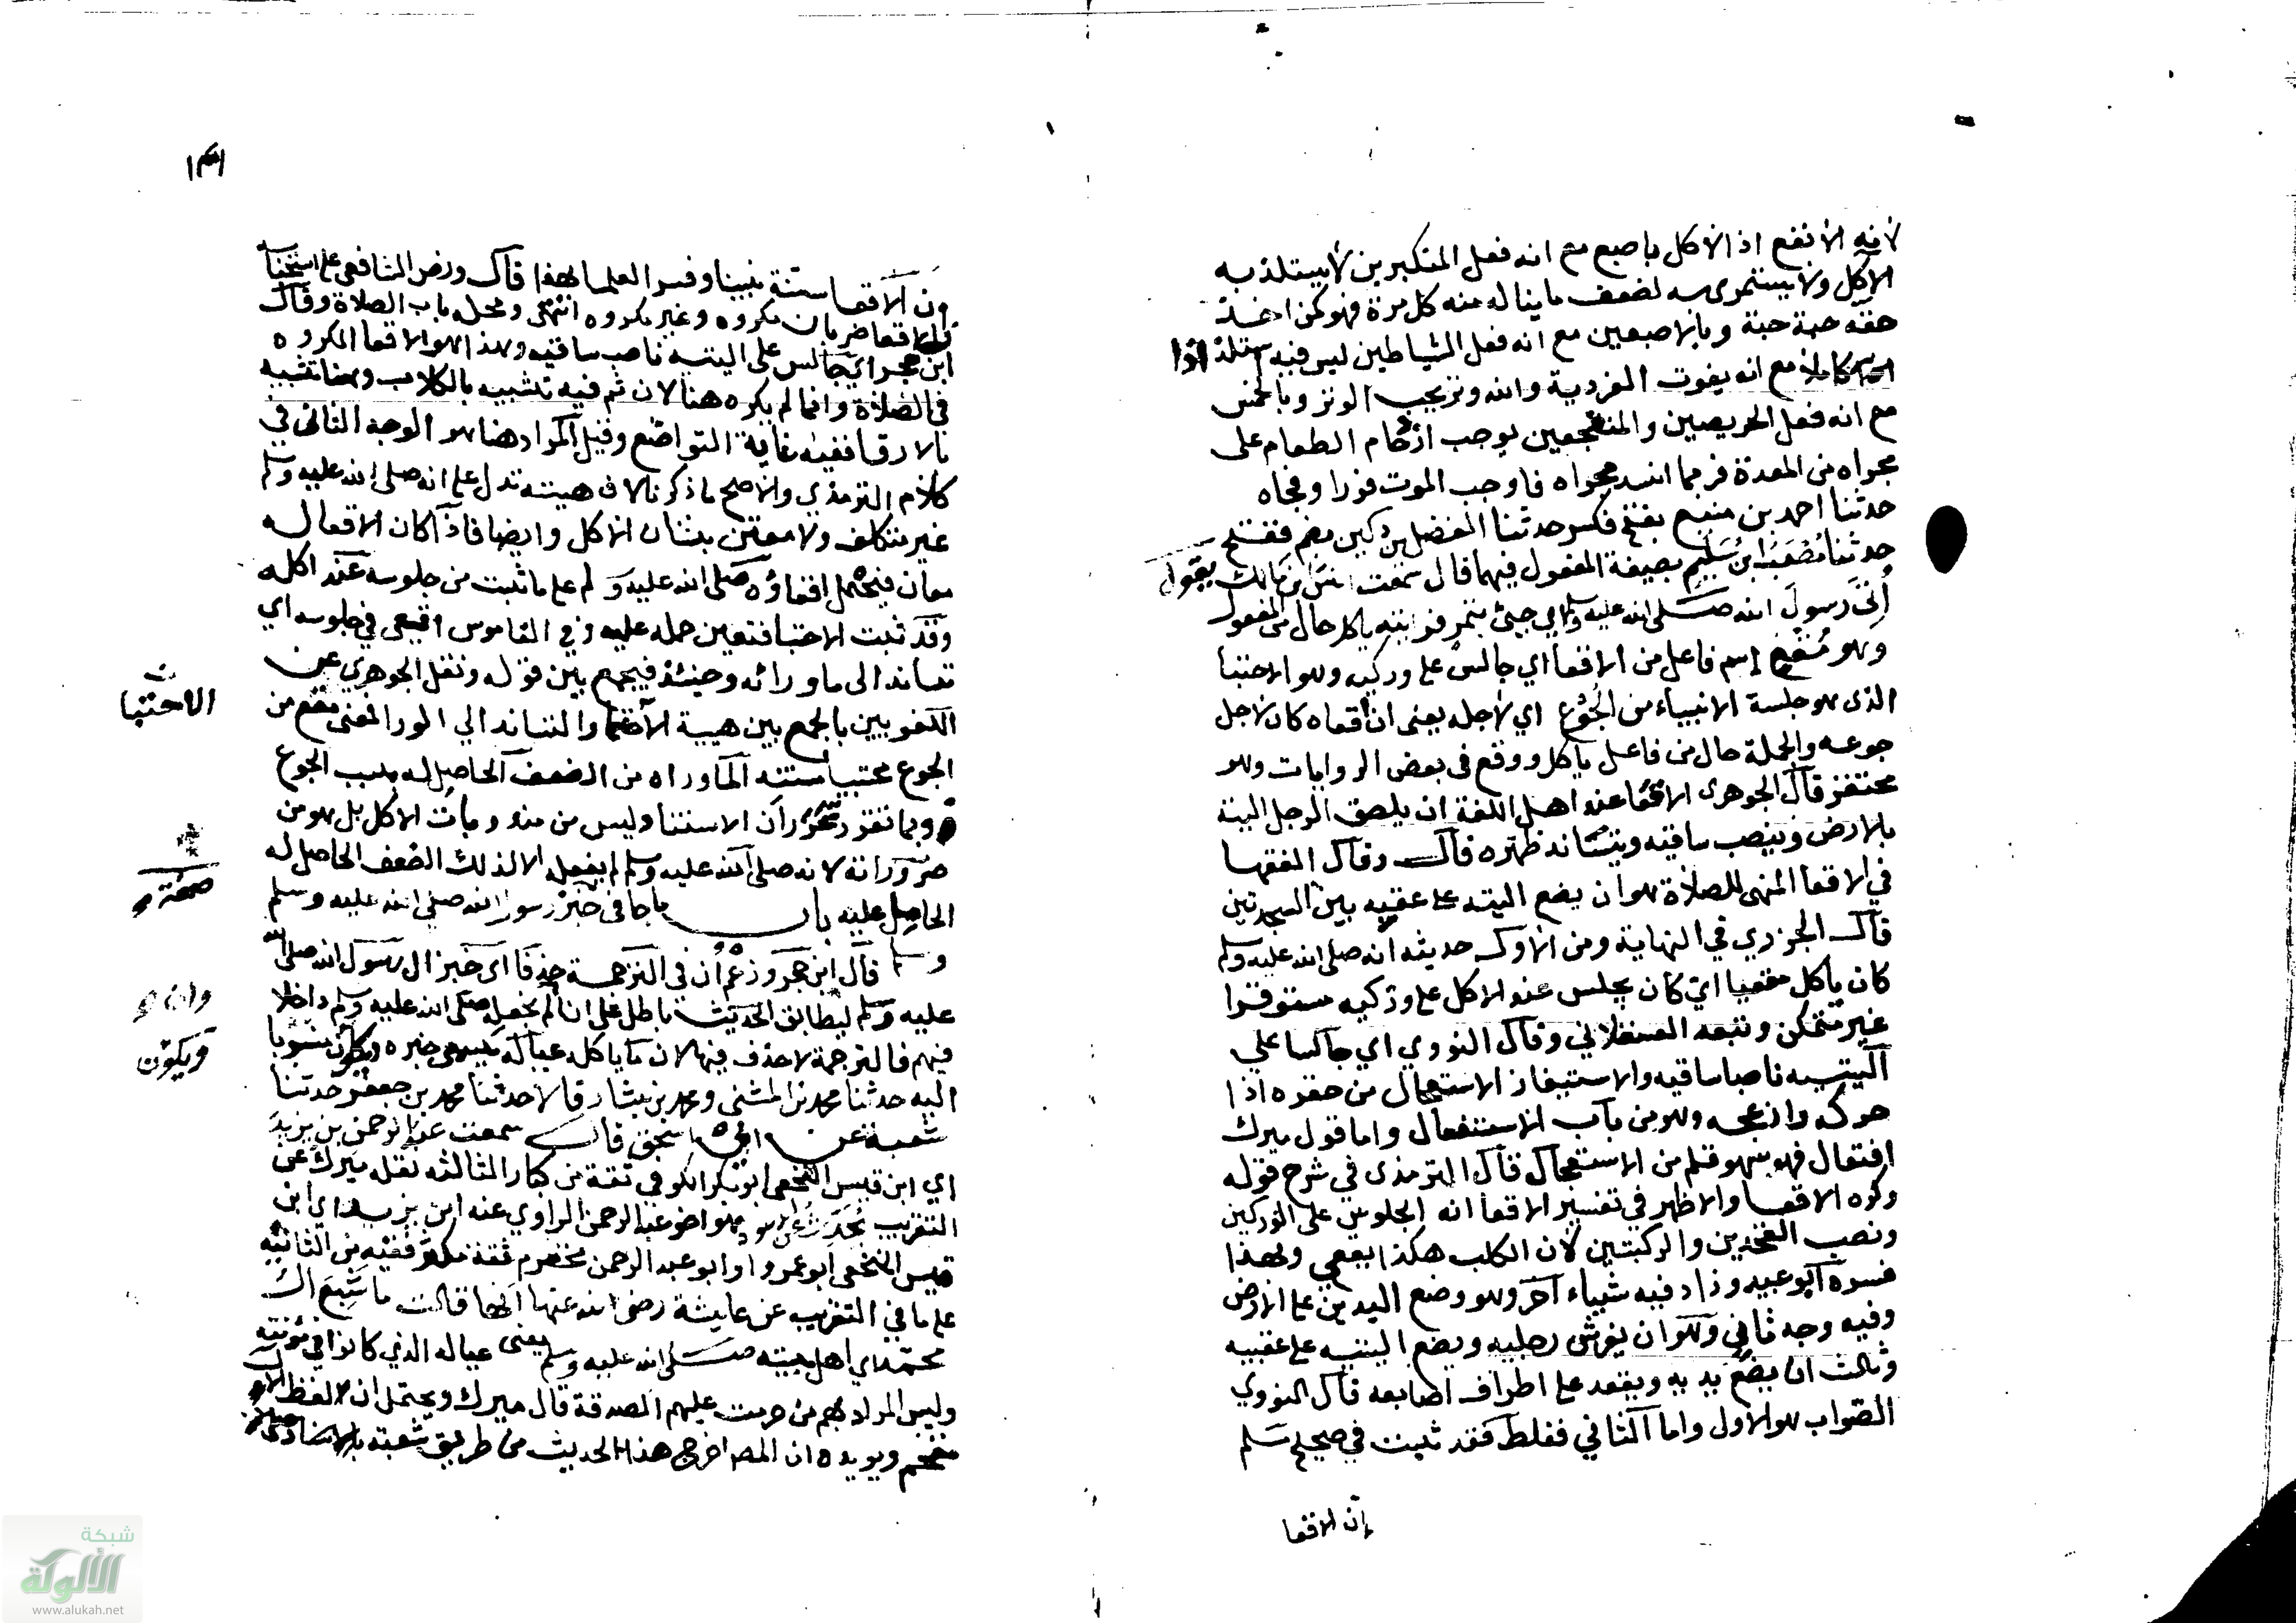 لانه الانفع اذ الاكل باصبع مع انه فعل المتكبرين لا يستلذ به
الآكل ولا يستمرى به لضعف ما يناله منه كل مرة فهو كمن اخذ
حقه حبة حبة وبالاصبعين مع انه فعل الشياطين ليس فيه استلذاذ
كاملا مع انه يفوت الفردية والله وتر يحب الوتر وبالخمس
مع انه فعل الحريصين والمتفجعين يوجب ازدحام الطعام على
مجراه من المعدة فربما انسد مجراه فاوجب الموت فورا وفجاه
حدثنا احمد بن منيع بفتح فكسر حدثنا الفضل بن دكين بضم ففتح
حدثنا مصعب ابن سليم بصيغة المفعول فيهما قال سمعت انس بن مالك يقول
اتي رسول الله صلى الله عليه وسلم اي جيئ بتمر فرايته ياكل حال من المفعول
وهو مقع اسم فاعل من الاقعا اي جالس على وركيه وهو الاحتبا
الذى هو جلسة الانبياء من الجوع اي لاجله يعنى ان اقعاه كان لاجل
جوعه والجملة حال من فاعل ياكل ووقع في بعض الروايات وهو
محتفز قال الجوهرى الاقعا عند اهل اللغة ان يلصق الرجل اليته
بالارض وينصب ساقيه ويتساند ظهره قال وقال الفقها
في الاقعا المنهى للصلاة هو ان يضع اليته على عقبيه بين السجدتين
قال الجزري في النهاية ومن الاول حديثه انه صلى الله عليه وسلم
كان ياكل مقعيا اي كان يجلس عند الاكل على وركيه مستوفزا
غير متمكن وتبعه العسقلاني وقال النووي اي جالسا علي
اليتيه ناصبا ساقيه والاستيفاز الاستعجال من حفزه اذا
حركه وازعجه وهو من باب الاستفعال واما قول ميرك
افتعال فهو سهو قلم من الاستعجال قال الترمذى في شرح قوله
وكره الاقعا والاظهر في تفسير الاقعا انه الجلوس على الوركين
ونصب الفخذين والركبتين لان الكلب هكذا يقعي وبهذا
فسره ابو عبيد وزاد فيه شياء آخر وهو وضع اليدين على الارض
وفيه وجه ثاني وهو ان يفرش رجليه ويضع اليتيه على عقبيه
وثالث ان يضع يديه ويقعد على اطراف اصابعه قال النووي
الصواب هو الاول واما الثاني فغلط فقد ثبت في صحيح مسلم
ان الاقعا
١٣١
ان الاقعا سنة نبينا وفسر العلما بهذا قال ونص الشافعى على استحبابه
فالاقعا ضربان مكروه وغير مكروه انتهى ومحله باب الصلاة وقال
ابن حجر اي جالس على اليتيه ناصب ساقيه وهذا هو الاقعا المكروه
في الصلاة وانما لم يكره هنا لان ثم فيه تشبيه بالكلاب وهنا تشبيه
بالارقا ففيه غاية التواضع وقيل المراد هنا هو الوجه الثانى في
كلام الترمذي والاصح ما ذكرنا لان هيئته تدل على انه صلى الله عليه وسلم
غير متكلف ولا معتن بشان الاكل وايضا فاذا كان الاقعا له
معان فيحمل اقعاؤه صلى الله عليه وسلم على ما ثبت من جلوسه عند اكله
وقد ثبت الاحتبا فتعين حمله عليه وفي القاموس اقعى في جلوسه اي
تساند الى ما ورائه وحينئذ فيجمع بين قوله ونقل الجوهرى عن
اللغويين بالجمع بين هيئة الاحتبا والتساند الي الورا فمعنى مقع من
الجوع محتبيا مستندا لما وراه من الضعف الحاصل له بسبب الجوع
وبما تقرر تحرر ان الاستنا وليس من مندوبات الاكل بل هو من
ضروراته لانه صلى الله عليه وسلم لم يفعله الا لذلك الضعف الحاصل له
الحاصل عليه باب ما جا في خبز رسول الله صلى الله عليه وسلم
قال ابن حجر وزعم ان في الترجمة حذفا اى خبز ال رسول الله صلى الله
عليه وسلم ليطابق الحديث باطل على انا لم نجعله صلى الله عليه وسلم داخلا
فيهم فالترجمة لا حذف فيها لان ما ياكله عياله يسمى خبزه ويكون منسوبا
اليه حدثنا محمد بن المثنى ومحمد بن بشار قالا حدثنا محمد بن جعفر حدثنا
شعبة عن ابى اسحق قال سمعت عبد الرحمن بن يزيد
اي ابن قيس النخعى ابو بكر الكوفى ثقة من كبار الثالثه نقله ميرك عن
التقريب يحدث عن الاسود هو اخو عبد الرحمن الراوي عنه ابن يزيد اي ابن
قيس النخعى ابو عمرو او ابو عبد الرحمن مخضرم ثقة مكثر فقيه من الثانية
على ما في التقريب عن عايشة رضى الله عنها انها قالت ما شبع ال
محمد اي اهل بيته صلى الله عليه وسلم يعنى عياله الذي كانوا في مؤنته
وليس المراد بهم من حرمت عليهم الصدقة قال ميرك ويحتمل ان لفظ الال
مقحم ويويده ان المص اخرج هذا الحديث من طريق شعبة
الاحتبا
صح
وان
ويكون
شبكة
الألوكة
www.alukah.net